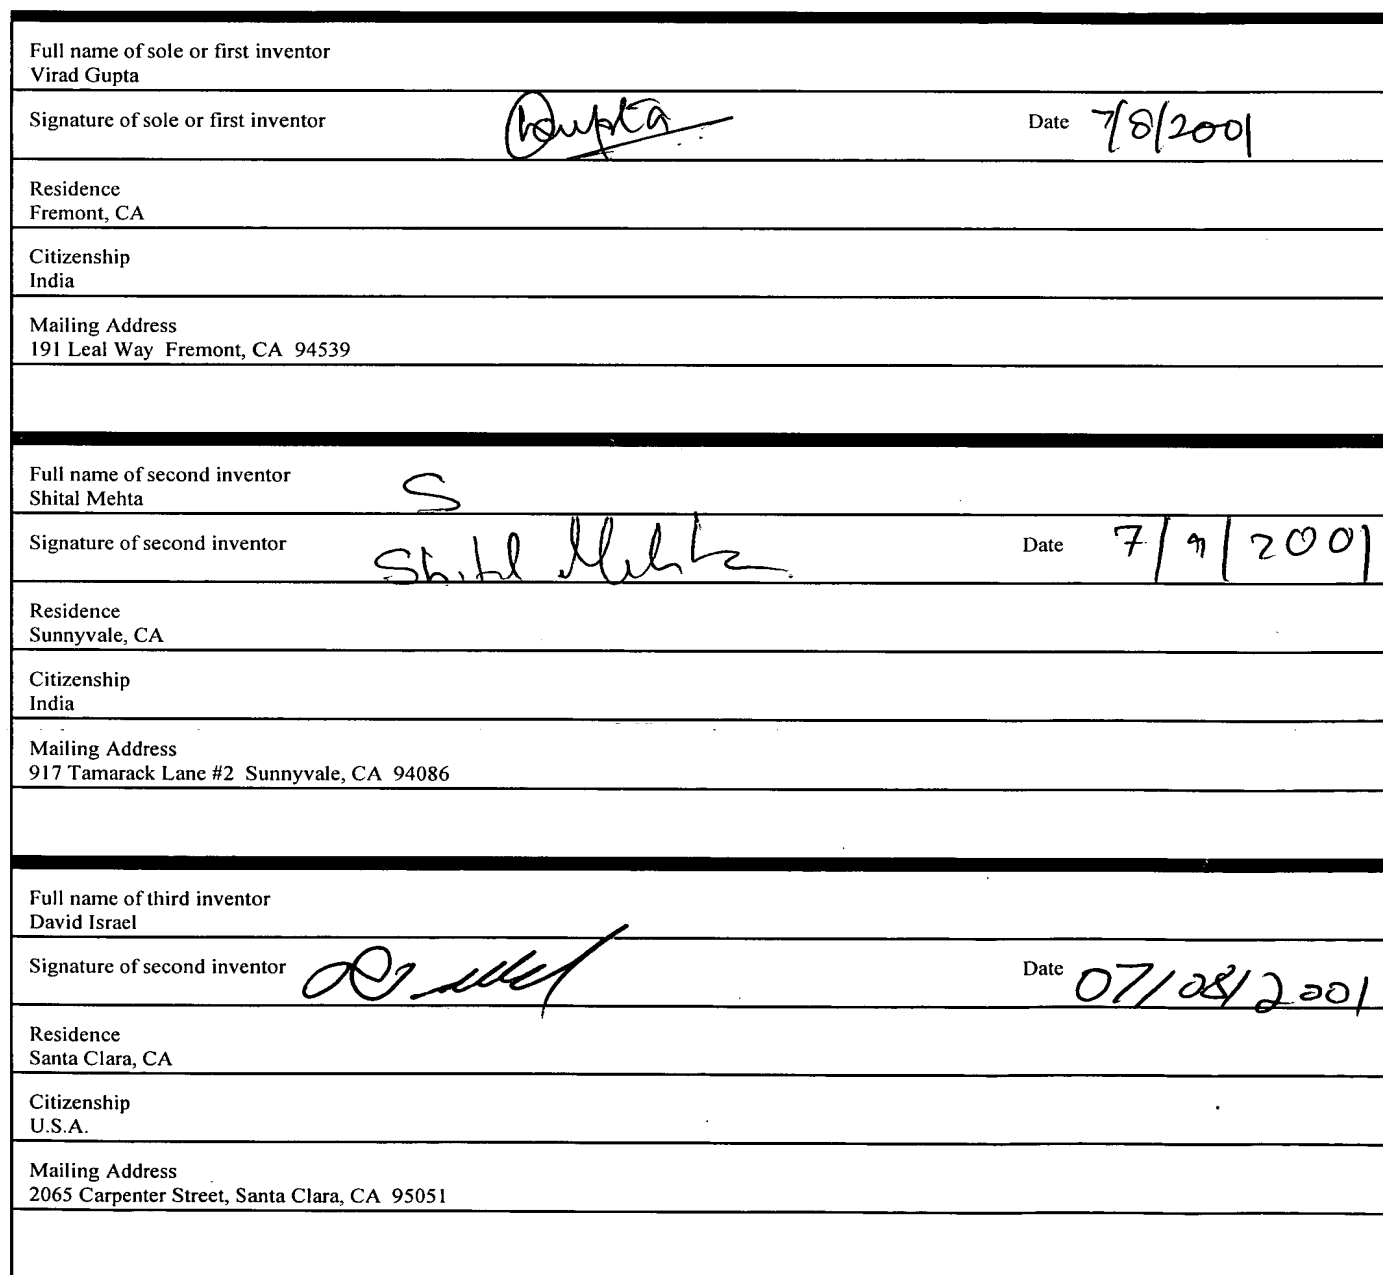 Full name of sole or first inventor
Virad Gupta
Signature of sole or first inventor Gupta Date 7/8/2001
Residence
Fremont, CA
Citizenship
India
Mailing Address
191 Leal Way Fremont, CA 94539
Full name of second inventor
Shital Mehta S
Signature of second inventor Shital Mehta Date 7/9/2001
Residence
Sunnyvale, CA
Citizenship
India
Mailing Address
917 Tamarack Lane #2 Sunnyvale, CA 94086
Full name of third inventor
David Israel
Signature of second inventor Date 07/08/2001
Residence
Santa Clara, CA
Citizenship
U.S.A.
Mailing Address
2065 Carpenter Street, Santa Clara, CA 95051